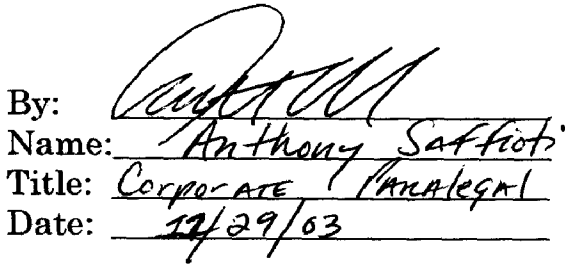 By:
Name: Anthony Saffioti
Title: Corporate Paralegal
Date: 12/29/03